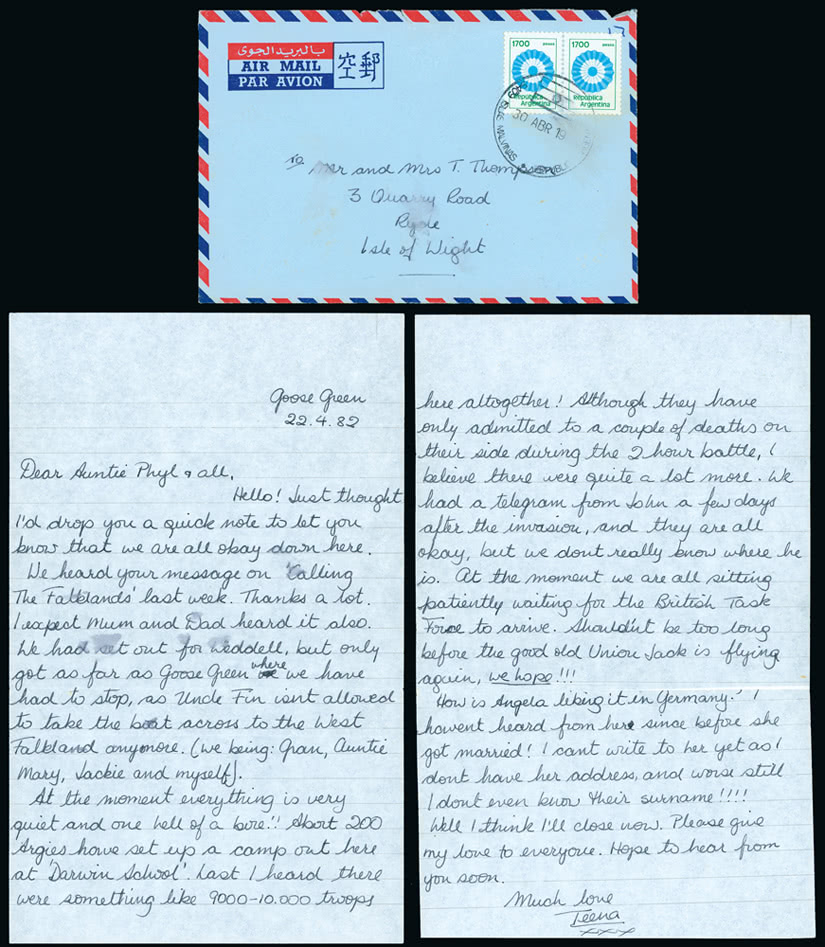 بالبريد الجوى
AIR MAIL
PAR AVION
空郵
1700 PESOS
República
Argentina
1700 PESOS
República
Argentina
ISLAS MALVINAS
30 ABR 19
REPUBLIC
To Mr and Mrs T. Thompson
3 Quarry Road
Ryde
Isle of Wight
Goose Green
22.4.82
Dear Auntie Phyl & all,
Hello! Just thought
I'd drop you a quick note to let you
know that we are all okay down here.
We heard your message on 'Calling
The Falklands' last week. Thanks a lot.
I expect Mum and Dad heard it also.
We had set out for Weddell, but only
got as far as Goose Green where we have
had to stop, as Uncle Fin isnt allowed
to take the boat across to the West
Falkland anymore. (we being: Gran, Auntie
Mary, Jackie and myself).
At the moment everything is very
quiet and one hell of a bore!! About 200
Argies have set up a camp out here
at 'Darwin School'. Last I heard there
were something like 9000-10.000 troops
here altogether! Although they have
only admitted to a couple of deaths on
their side during the 2 hour battle, I
believe there were quite a lot more. We
had a telegram from John a few days
after the invasion, and they are all
okay, but we dont really know where he
is. At the moment we are all sitting
patiently waiting for the British Task
Force to arrive. Shouldn't be too long
before the good old Union Jack is flying
again, we hope!!!
How is Angela liking it in Germany? I
havent heard from here since before she
got married! I cant write to her yet as I
dont have her address, and worse still
I dont even know their surname!!!!
Well I think I'll close now. Please give
my love to everyone. Hope to hear from
you soon.
Much love
Teena
xxx